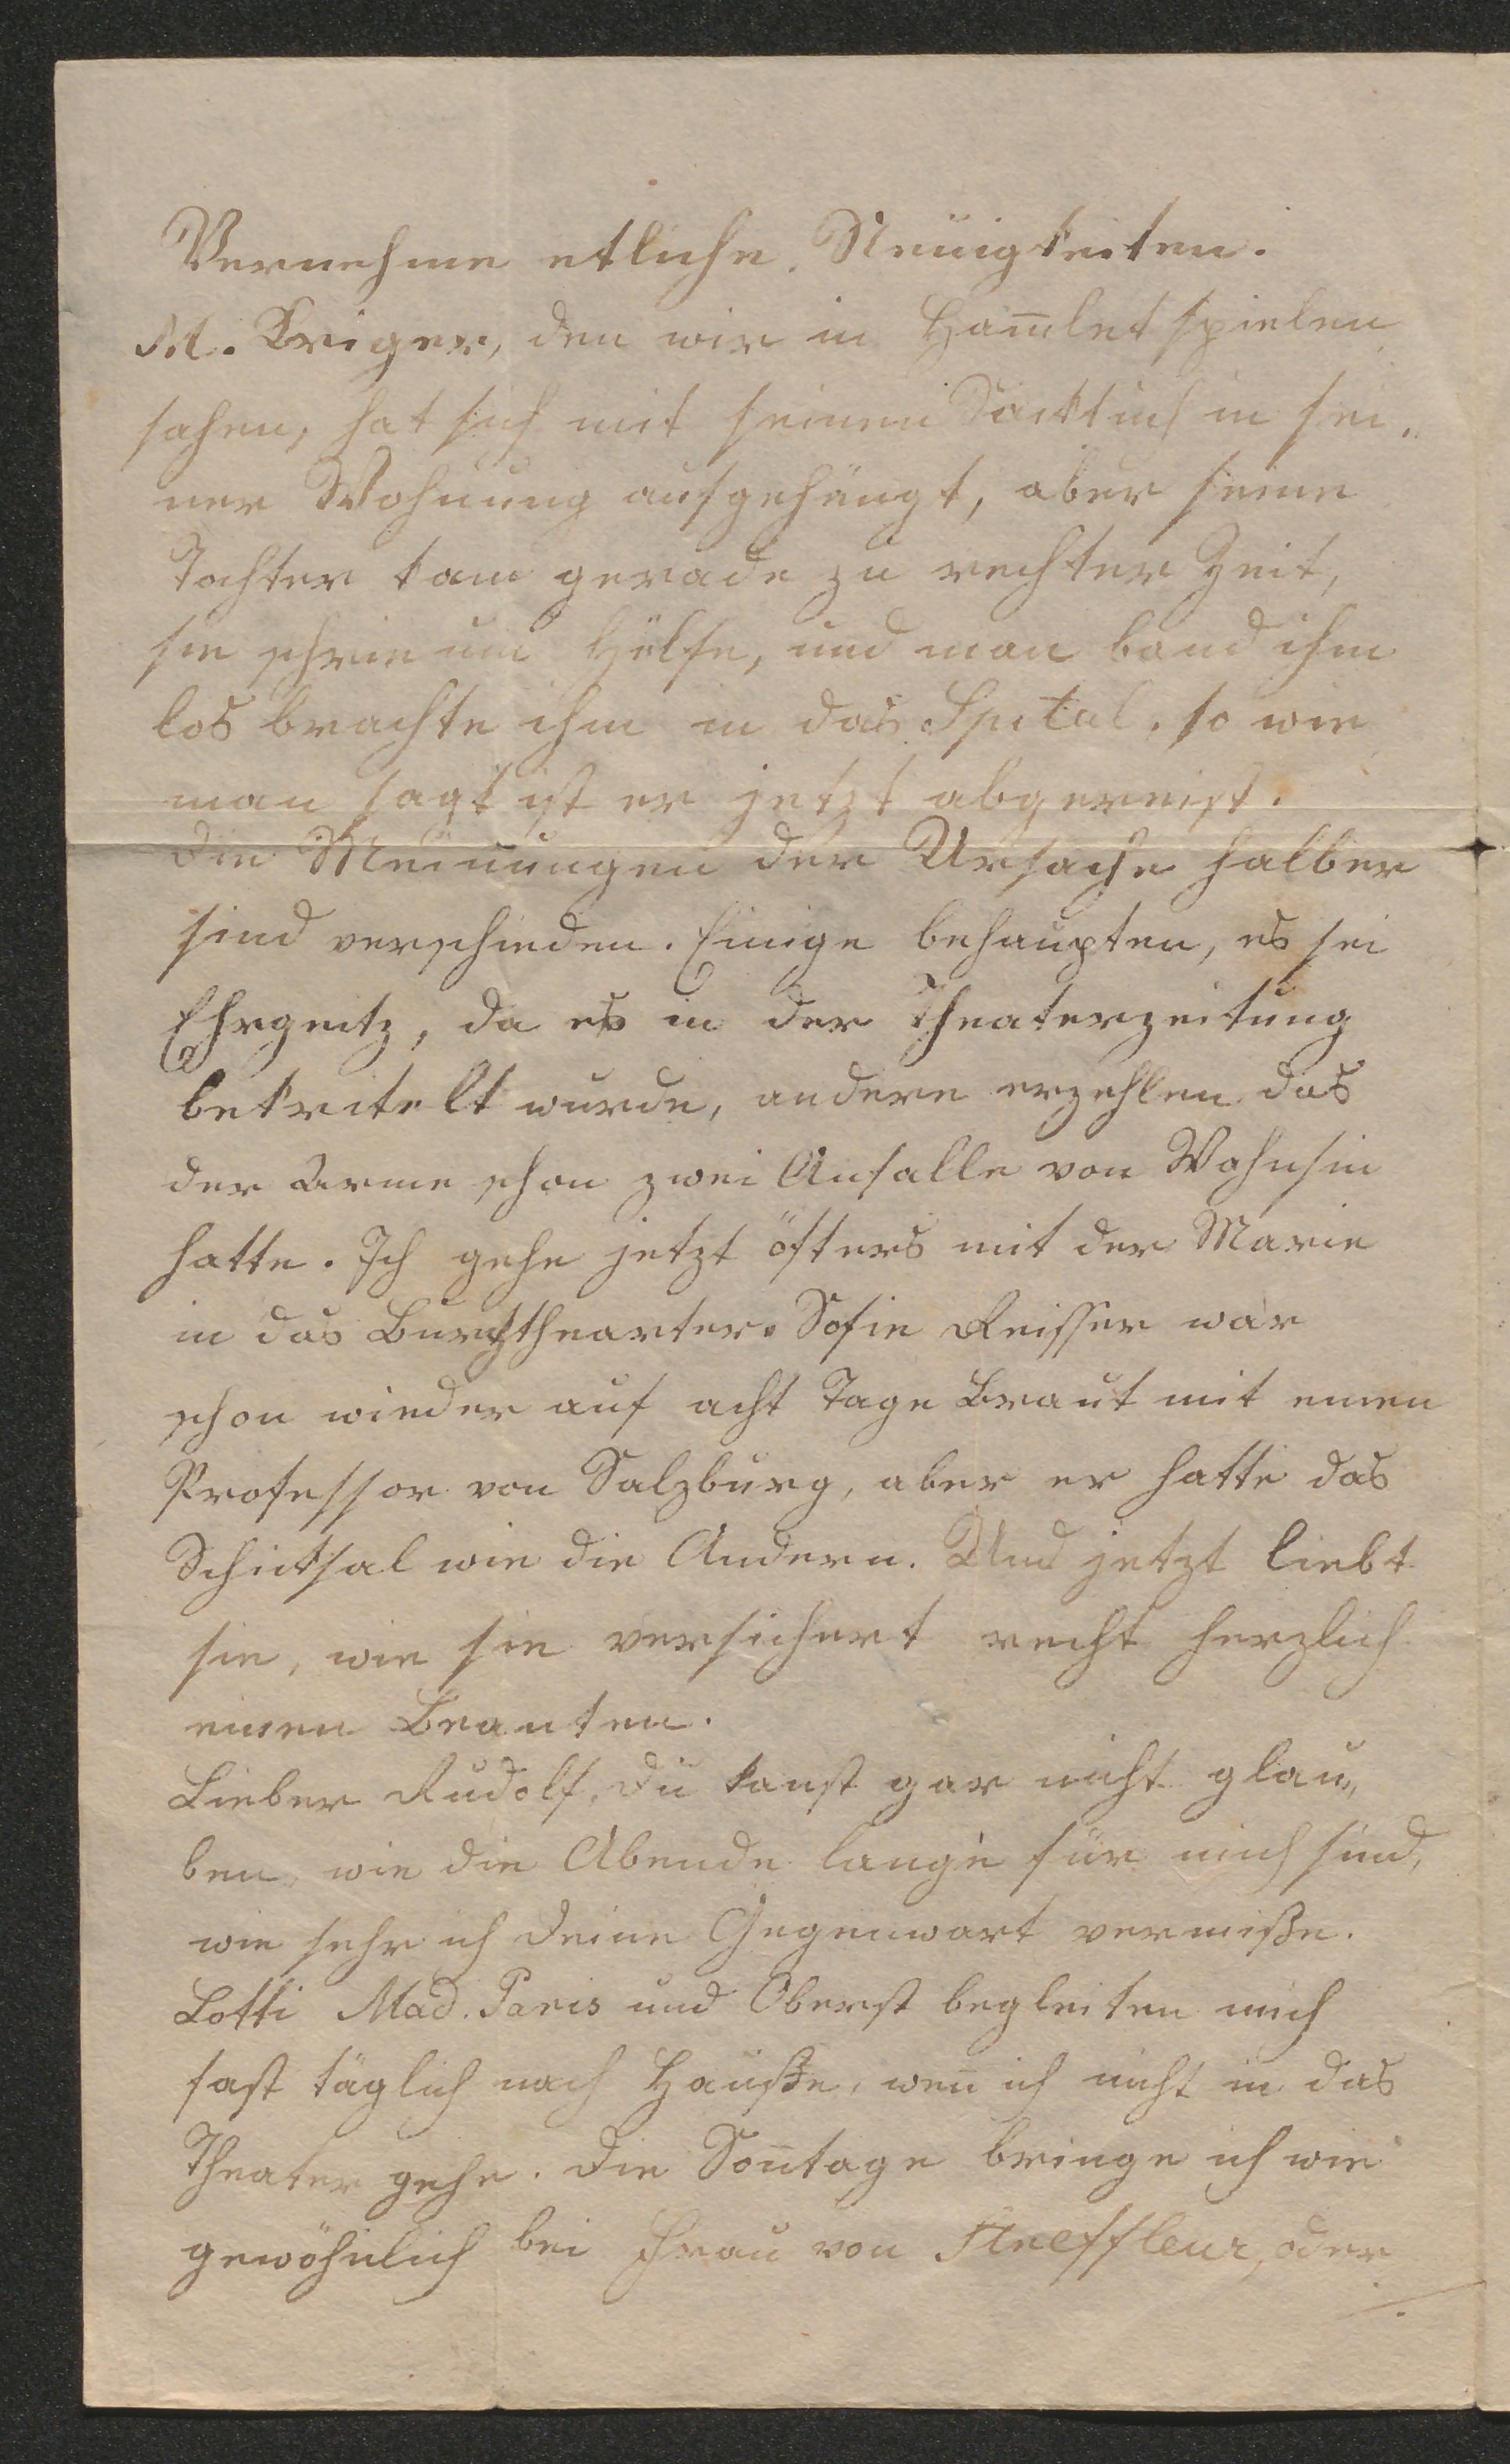 Vernehme etliche Neuigkeiten.
M. Kriger, den wir in Ham̅let spielen
sahen, hat sich mit seinen Sacktuch in sei„
ner Wohnung aufgehängt, aber seine
Tochter kam gerade zu rechter Zeit,
sie schrie um Hülfe, und man band ihm
los brachte ihm in das Spital. so wie
man sagt ist er jetzt abgereist.
die Meinungen der Ursache halber
sind verschieden. Einige behaupten, es sei
Ehrgeitz, da es in der Theaterzeitung
bekritelt wurde, andere erzehlen das
der Arme schon zwei Anfalle von Wahnsin
hatte. Ich gehe jetzt öfters mit der Marie
in das Burgthearter. Sofie Reisser war
schon wieder auf acht Tage Braut mit einen
Professor von Salzburg, aber er hatte das
Schicksal wie die Andern. Und jetzt liebt
sie, wie sie versichert recht herzlich
einen Beamten.
Lieber Rudolf, du kanst gar nicht glau„
ben, wie die Abende lange für mich sind,
wie sehr ich deine Gegenwart vermiße.
Lotti Mad. Paris und Oberst begleiten mich
fast täglich nach Hauße, wen̅ ich nicht in das
Theater gehe. Die Son̅tage bringe ich wie
gewöhnlich bei Frau von Streffleur, oder
./.